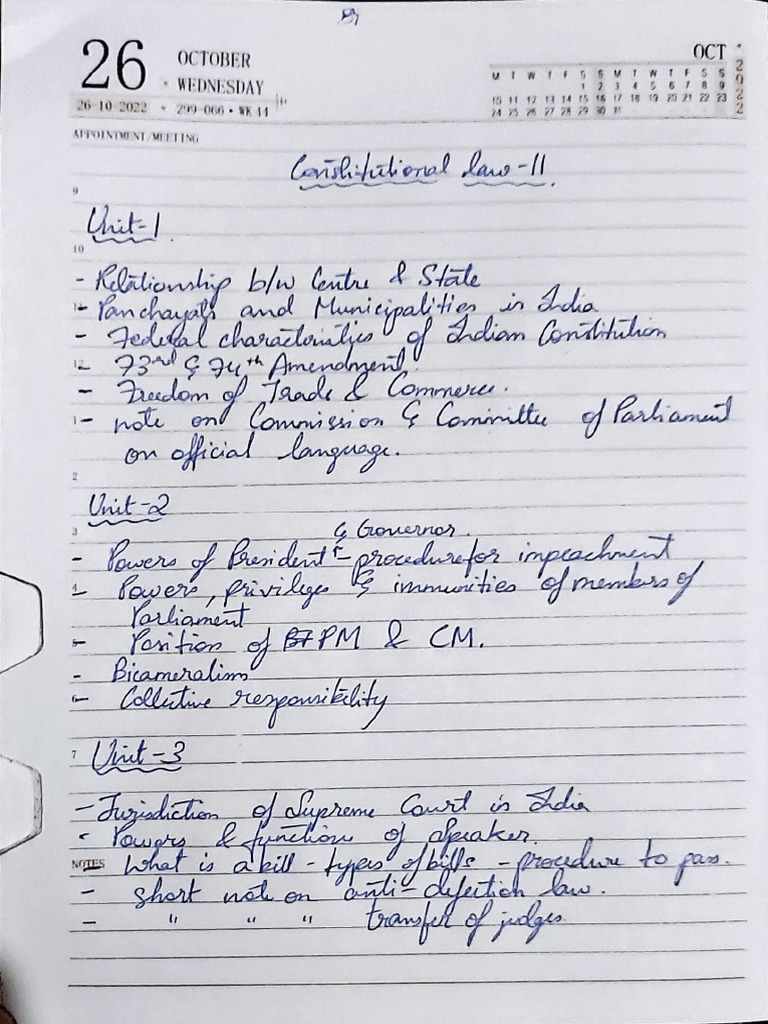 26 OCTOBER
WEDNESDAY
26-10-2022 • 299-066 • WK 44
OCT
2022
M T W T F S S M T W T F S S
1 2 3 4 5 6 7 8 9
10 11 12 13 14 15 16 17 18 19 20 21 22 23
24 25 26 27 28 29 30 31
APPOINTMENT/MEETING
Constitutional law-II
9
Unit-1
10
- Relationship b/w Centre & State
11 - Panchayats and Municipalities in India
- Federal characteristics of Indian Constitution
12 - 73rd & 74th Amendment
- Freedom of Trade & Commerce.
1 - note on Commission & Committee of Parliament
on official language.
2
Unit-2
3
& Governor.
- Powers of President - procedure for impeachment
4 - Powers, privileges & immunities of members of
Parliament
5 - Position of PM & CM.
- Bicameralism
6 - Collective responsibility
7 Unit-3
- Jurisdiction of Supreme Court in India
- Powers & function of Speaker.
NOTES What is a bill - types of bills - procedure to pass.
- Short note on anti-defection law.
- " " " transfer of judges